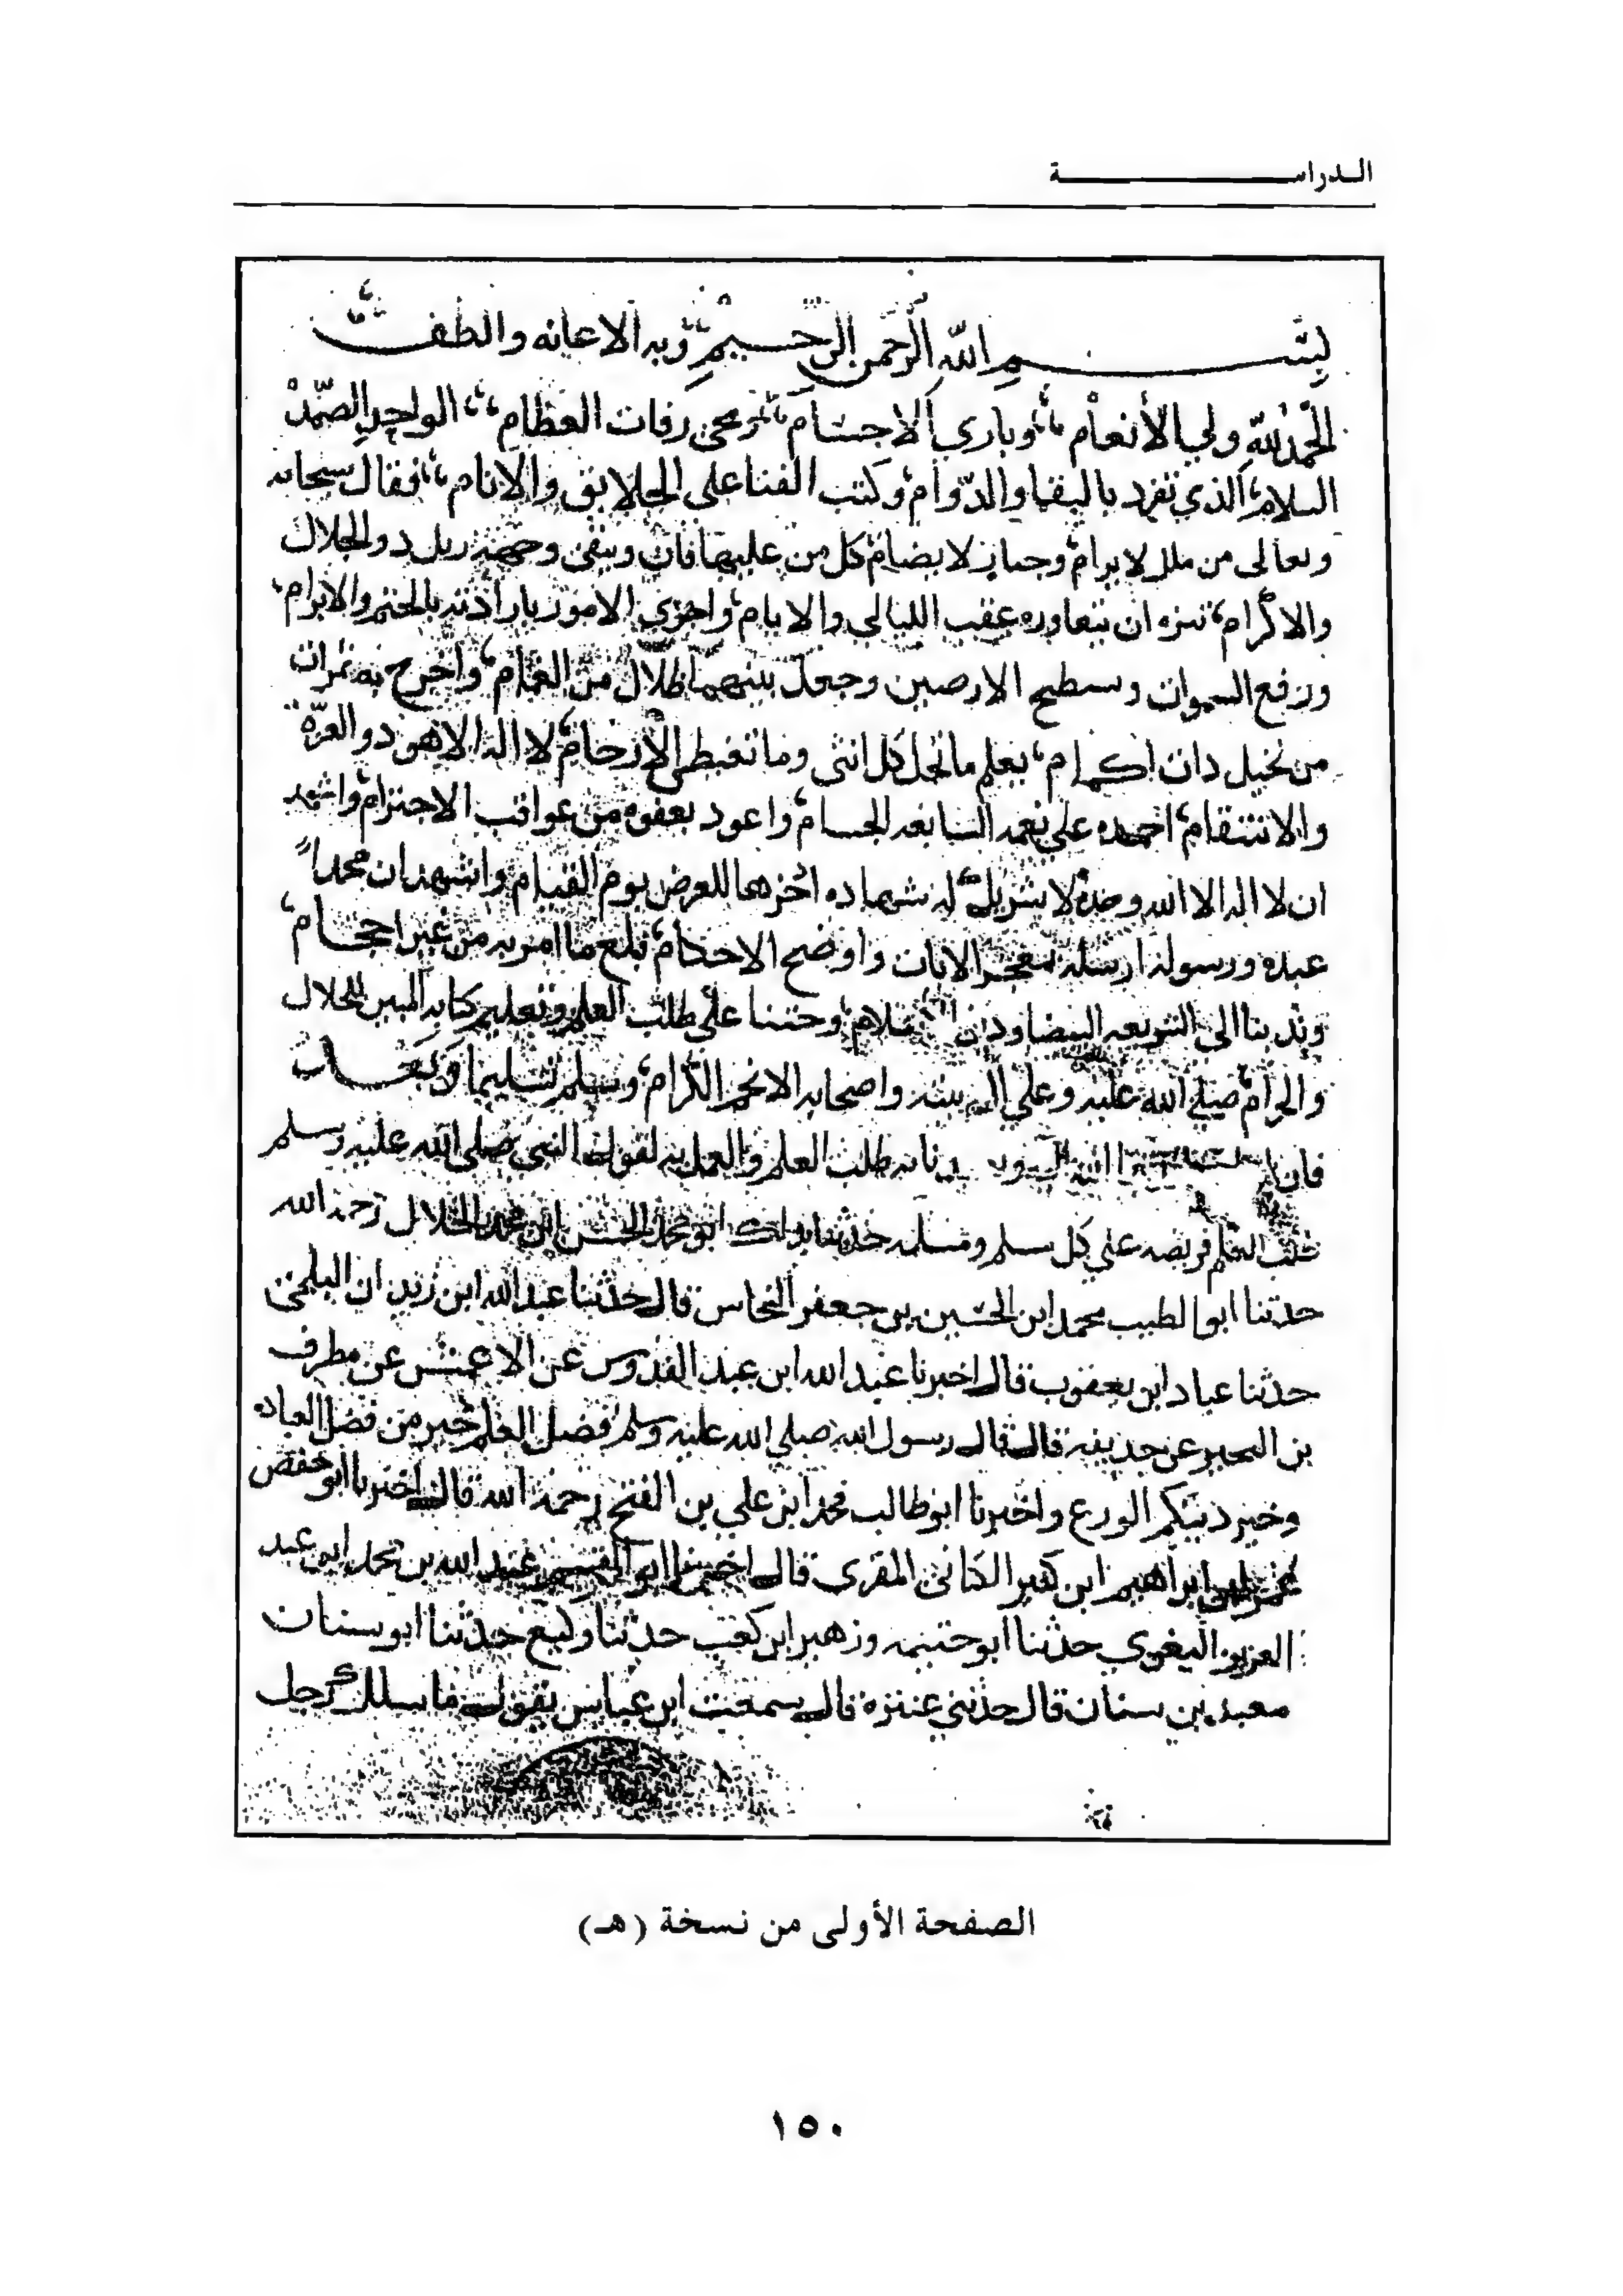 الـدراســـــــــــــة
بسم الله الرحمن الرحيم وبه الاعانه والطف
الحمد لله ولي الأنعام وباري الاجسام محى رفات العظام الواحد الصمد
السلام الذي تفرد بالبقا والدوام وكتب الفنا على الخلايق والانام فقال سبحانه
وتعالى من ملك لا يرام وجبار لا يضام كل من عليها فان ويبقى وجه ربك ذو الجلال
والاكرام تنزه ان تتعاوره عقب الليالي والايام واجرى الامور بارادته بالحتم والابرام
ورفع السموات وسطح الارضين وجعل بينهما ظلال من الغمام واخرج به ثمرات
من نخيل ذات اكمام يعلم ما تحمل كل انثى وما تغيض الارحام لا اله الا هو ذو العزة
والانتقام احمده على نعمه السابغه الجسام واعوذ بعفوه من عواقب الاجترام واشهد
ان لا اله الا الله وحده لا شريك له شهاده اذخرها للعرض يوم القيام واشهد ان محمداً
عبده ورسوله ارسله بمعجز الايات واوضح الاحكام بلغ ما امر به من غير احجام
وندبنا الى الشريعه البيضا ودين وحثنا على طلب العلم وتعليم كتابه المبين للحلال
والحرام صلى الله عليه وعلى ال بيته واصحابه الانجم الكرام وسلم تسليما وبعد
فان طلب العلم والعمل به لقول النبي صلى الله عليه وسلم
طلب العلم فريضه على كل مسلم ومسلمه حدثنا بذلك ابو محمد الحسن ابن محمد الخلال رحمه الله
حدثنا ابو الطيب محمد ابن الحسين بن جعفر النخاس قال حدثنا عبد الله ابن زيدان البلجى
حدثنا عباد ابن يعقوب قال اخبرنا عبد الله ابن عبد القدوس عن الاعمش عن مطرف
بن الحير عن حذيفه قال قال رسول الله صلى الله عليه وسلم فضل العلم خير من فضل العباده
وخير دينكم الورع واخبرنا ابو طالب محمد ابن علي بن الفتح رحمه الله قال اخبرنا ابو حفص
عمر ابن ابراهيم ابن كثير الكتانى المقرى قال اخبرنا ابو القسم عبد الله بن محمد ابن عبد
العزيز البغوي حدثنا ابو خثيمه وزهير ابن كعب حدثنا وكيع حدثنا ابو سنان
سعيد بن سنان قال حدثني عنتزة قال سمعت ابن عباس يقول ما سلك رجل
الصفحة الأولى من نسخة (هـ)
١٥٠